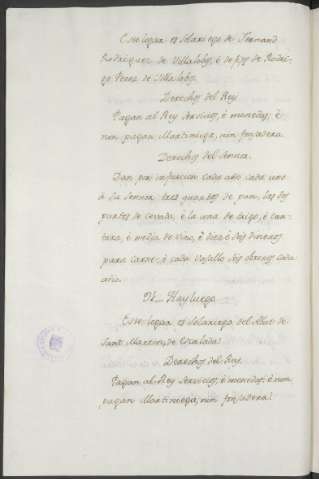 Este logar es solariego de Fernand
Rodriguez de Villalobos, è de fijos de Rodri-
go Perez de Villalobos.
Derechos del Rey
Pagan al Rey servicios, è monedas, è
non pagan Martiniega, nin fonsadera.
Derechos del Sennor.
Dan por infurcion cada año cada uno
à su Sennor tres quartos de pan, las dos
partes de cevada, è la una de trigo, è can-
tara, è media de vino, è doce è seis dineros
para carne, è cada vasallo seis obreros cada
año.
Hayluengo
Este logar es solariego del Abat de
Sant Martin, de Escalada.
Derechos del Rey.
Pagan al Rey servicios, è monedas, è non
pagan Martiniega, nin fonsadera.